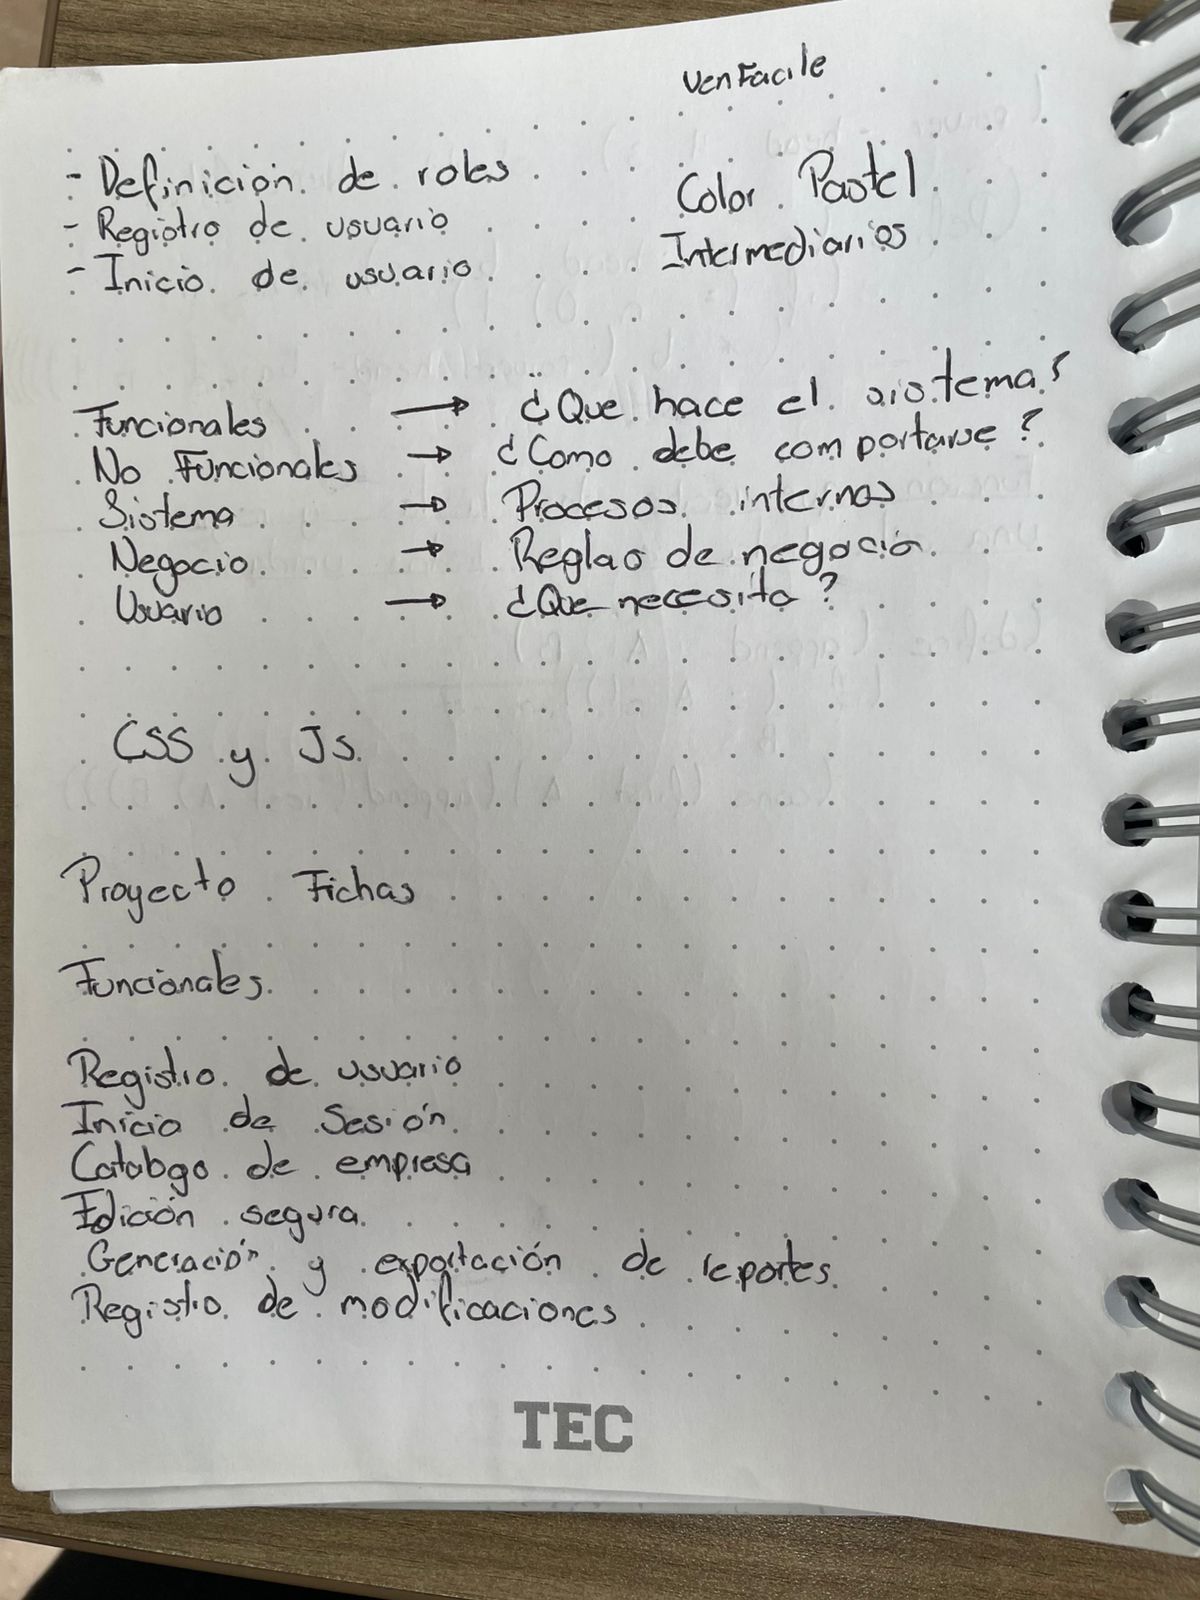 VenFacile
- Definición de roles
Color Pastel
- Registro de usuario
Intermediarios
- Inicio de usuario
Funcionales → ¿Que hace el sistema?
No Funcionales → ¿Como debe comportarse?
Sistema → Procesos internos
Negocio → Reglas de negocio
Usuario → ¿Que necesita?
CSS y Js
Proyecto Fichas
Funcionales
Registro de usuario
Inicio de Sesión
Catalogo de empresa
Edición segura
Generación y exportación de reportes
Registro de modificaciones
TEC